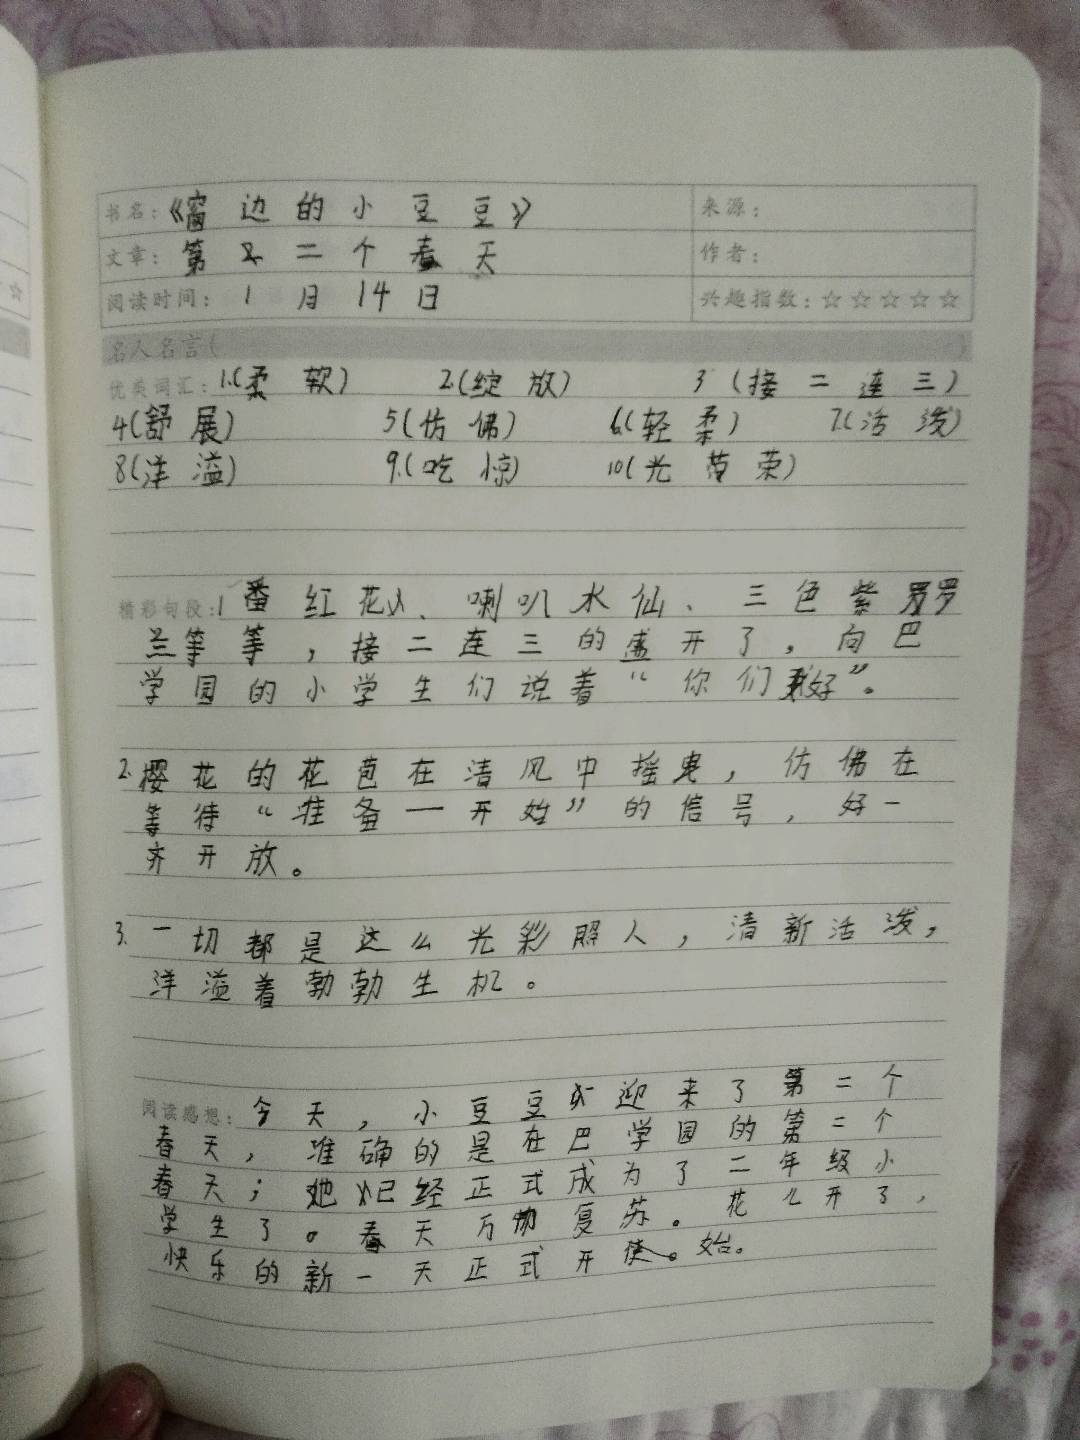 书名：《窗边的小豆豆》 来源：
文章：第二个春天 作者：
阅读时间：1月14日 兴趣指数：☆☆☆☆☆
名人名言（ ）
优美词汇：1.(柔软) 2.(绽放) 3(接二连三)
4(舒展) 5(仿佛) 6.(轻柔) 7.(活泼)
8(洋溢) 9.(吃惊) 10(光荣)
精彩句段：1番红花、喇叭水仙、三色紫罗
兰等等，接二连三的盛开了，向巴
学园的小学生们说着“你们好”。
2.樱花的花苞在清风中摇曳，仿佛在
等待“准备一开始”的信号，好一
齐开放。
3.一切都是这么光彩照人，清新活泼，
洋溢着勃勃生机。
阅读感想：今天，小豆豆迎来了第二个
春天，准确的是在巴学园的第二个
春天；她已经正式成为了二年级小
学生了。春天万物复苏。花儿开了，
快乐的新一天正式开始。